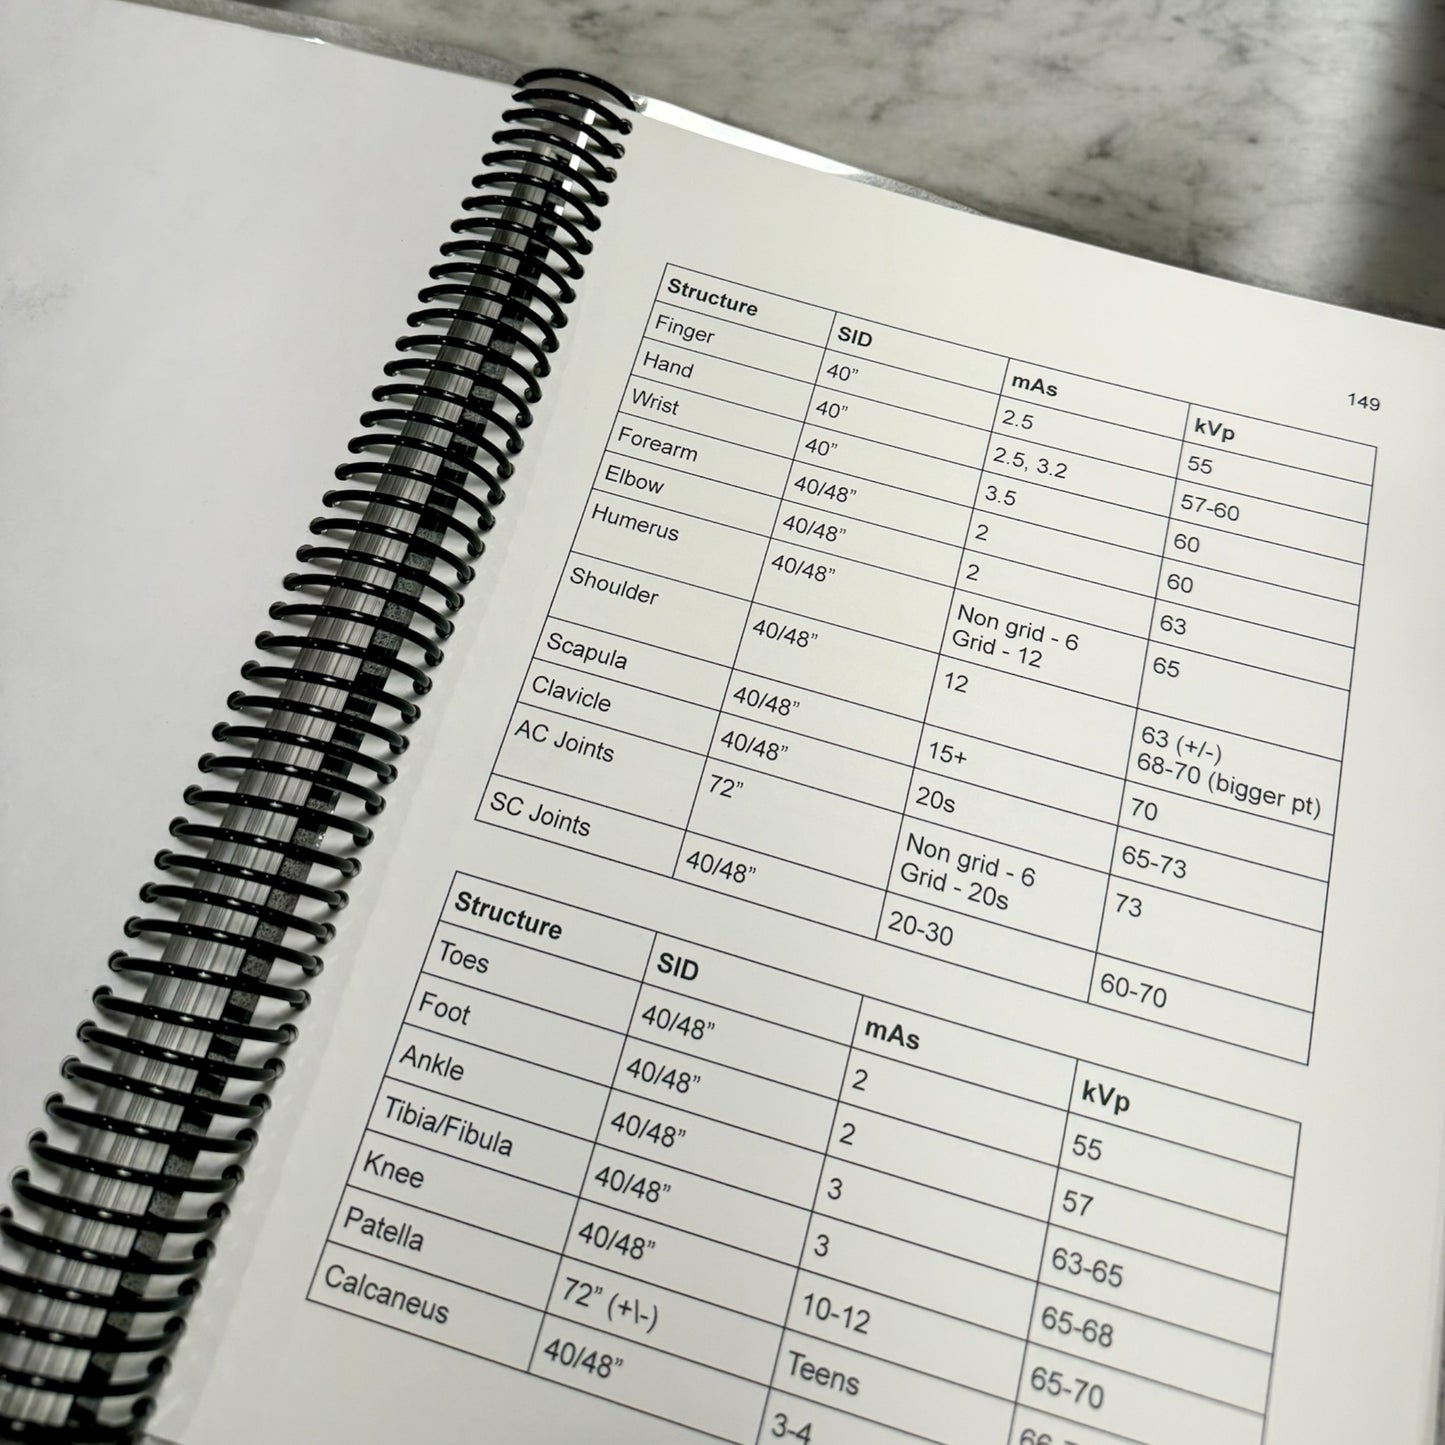 149
Structure SID mAs kVp
Finger 40” 2.5 55
Hand 40” 2.5, 3.2 57-60
Wrist 40” 3.5 60
Forearm 40/48” 2 60
Elbow 40/48” 2 63
Humerus 40/48” Non grid - 6 65
Grid - 12
Shoulder 40/48” 12 63 (+/-)
68-70 (bigger pt)
Scapula 40/48” 15+ 70
Clavicle 40/48” 20s 65-73
AC Joints 72” Non grid - 6 73
Grid - 20s
SC Joints 40/48” 20-30 60-70
Structure SID mAs kVp
Toes 40/48” 2 55
Foot 40/48” 2 57
Ankle 40/48” 3 63-65
Tibia/Fibula 40/48” 3 65-68
Knee 40/48” 10-12 65-70
Patella 72” (+\-) Teens
Calcaneus 40/48” 3-4